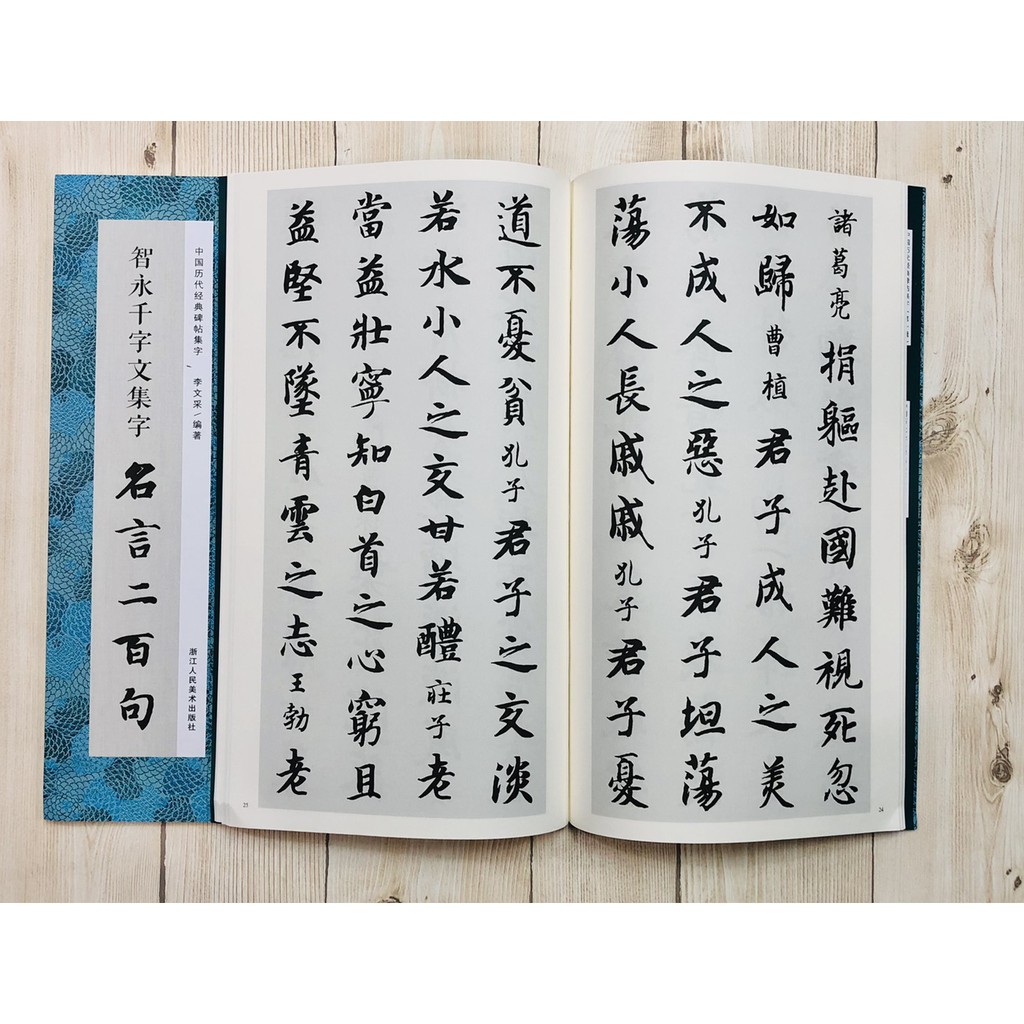 諸葛亮捐軀赴國難視死忽
如歸曹植君子成人之美
不成人之惡孔子君子坦蕩
蕩小人長戚戚孔子君子憂
24
道不憂貧孔子君子之交淡
若水小人之交甘若醴莊子老
當益壯寧知白首之心窮且
益堅不墜青雲之志王勃老
25
中国历代经典碑帖集字 李文采/编著
浙江人民美术出版社
智永千字文集字 名言二百句